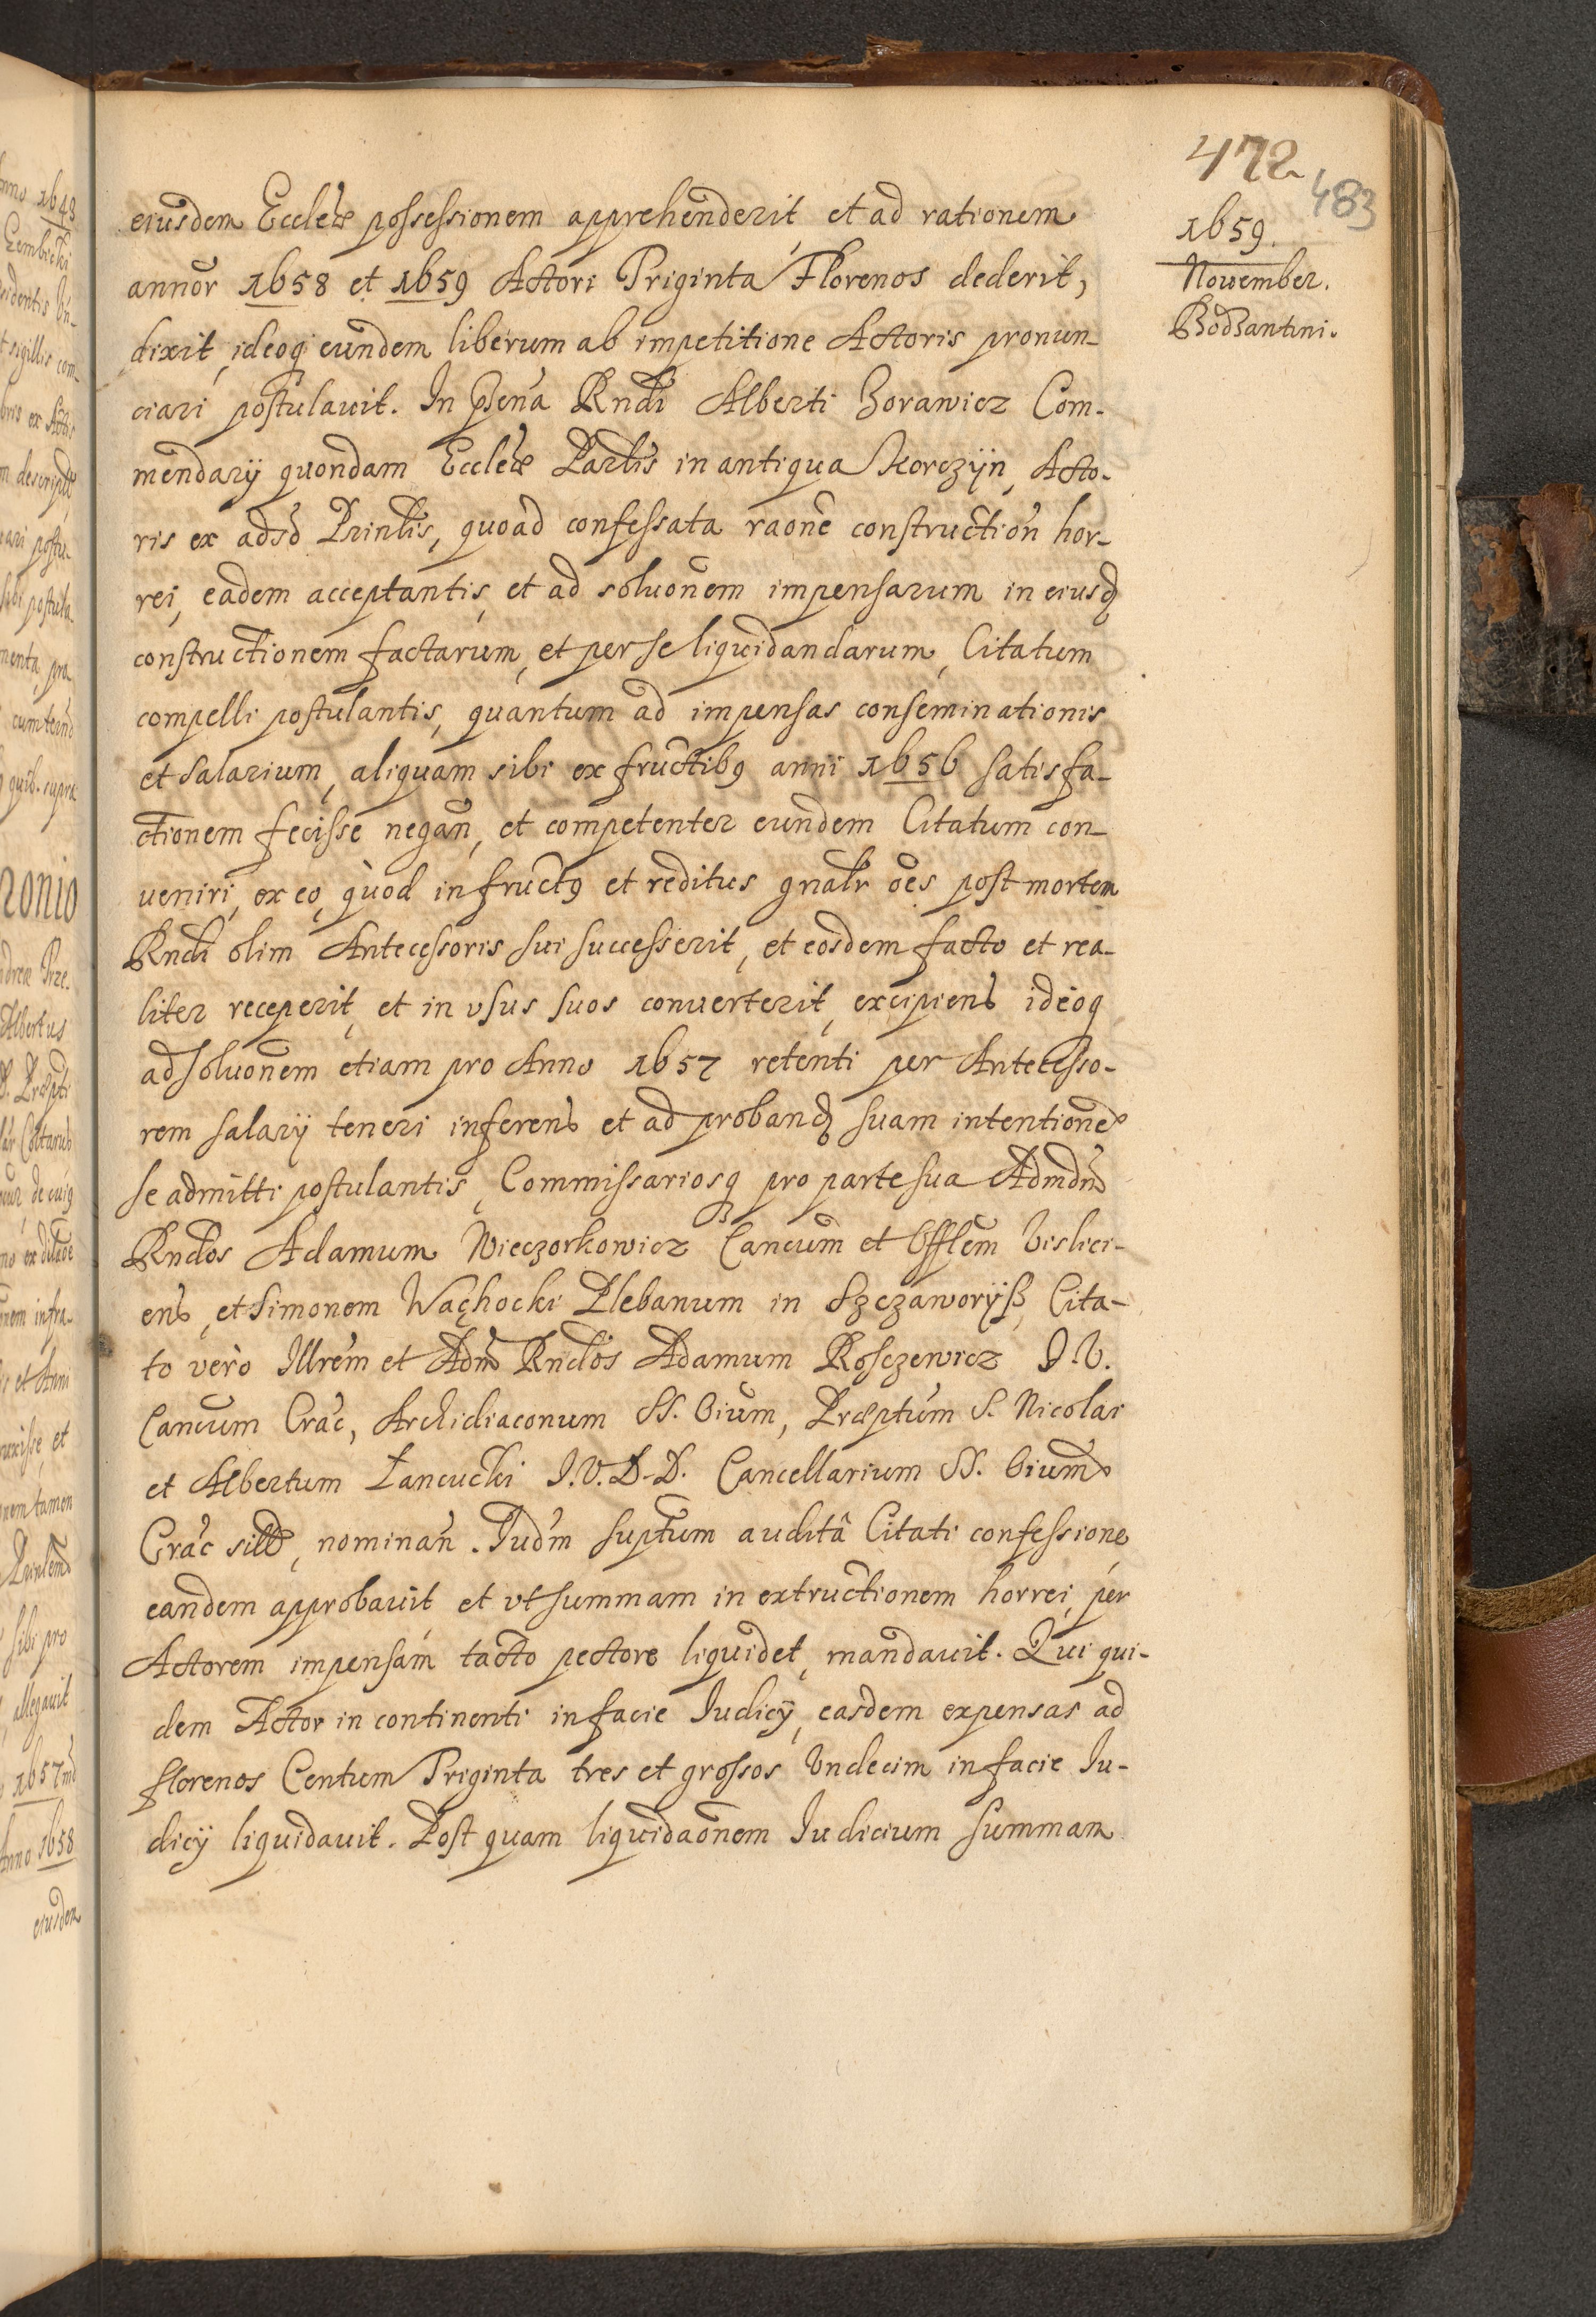 472
483
1659.
November.
Bodzantini.
eiusdem Eccl&#x0117;æ possessionem apprehenderit et ad rationem
annor 1658 et 1659 Actori Triginta Florenos dederit,
dixit, ideoq eundem liberum ab impetitione Actoris pronun-
ciari postulauit. In pñtia Rndi Alberti Zorawicz Com-
mendarij quondam Ecclæ Parlis in antiqua Korczyn, Acto-
ris ex adso Prinlis, quoad confessata raone construction hor-
rei, eadem acceptantis, et ad soluonem impensarum in eiusd
constructionem factarum, et per se liquidandarum, Citatum
compelli postulantis, quantum ad impensas conseminationis
et salarium, aliquam sibi ex fructibq anni 1656 satisfa-
ctionem fecisse negan, et competenter eundem Citatum con-
ueniri, ex eo, quod in fructq et reditus gnalr oes post mortem
Rndi olim Antecessoris sui successerit, et eosdem facto et rea-
liter receperit, et in vsus suos conuerterit, excipiens ideoq
ad soluonem etiam pro Anno 1657 retenti per Antecesso-
rem salarij teneri inferens et ad proband suam intentione
se admitti postulantis, Commissariosq pro parte sua Admdm
Rndos Adamum Wieczorkowicz Cancum et Offlem Vislici-
ens, et Simonem Wachocki Plebanum in Szczaworyß, Cita-
to vero Illrem et Adm Rndos Adamum Rosczewicz I.V.
Cancum Crac, Archidiaconum SS. Oium, Præptum S. Nicolai
et Albertum Łancucki I.V.D-D. Cancellarium SS. Oium
Crac sille, nominan. Iudm suptum audita Citati confessione
eandem approbauit et vt summam in extructionem horrei, per
Actorem impensam tacto pectore liquidet, mandauit. Qui qui-
dem Actor in continenti in facie Iudicij, easdem expensas ad
florenos Centum Triginta tres et grossos Vndecim in facie Iu-
dicij liquidauit. Post quam liquidaonem Iudicium summam